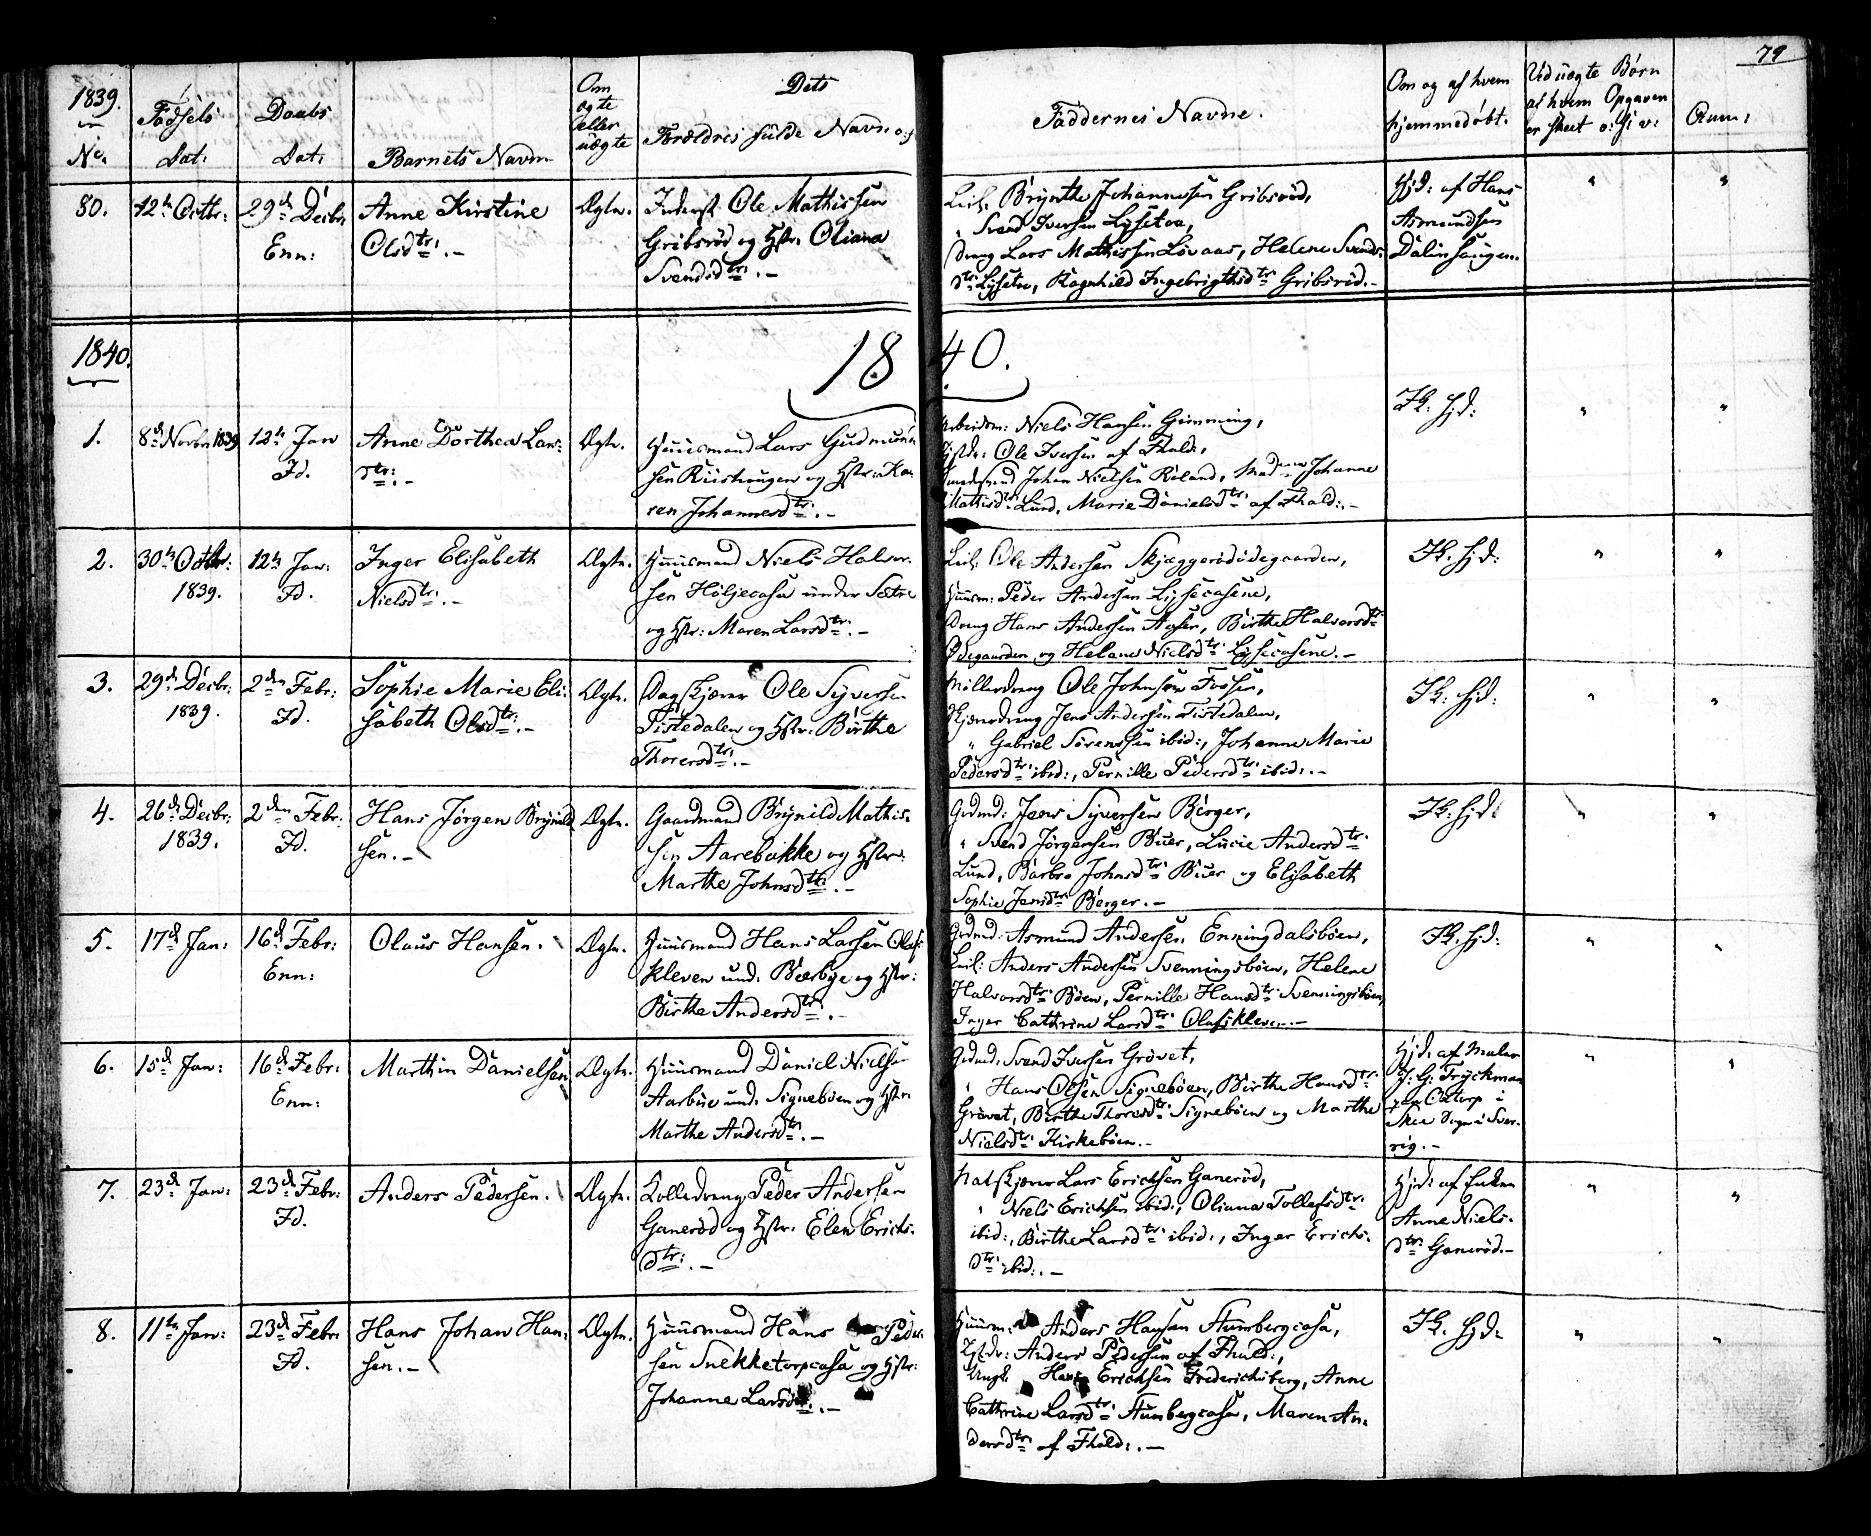 79
1839.
No.
Födsels
Dat:
Daabs
Dat:
Barnets Navn
Om
ægte
eller
uægte
Dets
Forældres fulde Navne
Faddernes Navne.
Om og af hvem
hjemmedöbt.
Ved uægte Børn
af hvem Opgaven
er skeet o: s: v:
Anm:
80.
12te Octbr:
29de Decbr
Enn:
Anne Kirstine
Olsdtr: .-
Ægte.
Inderst Ole Mathissen
Gribsröd og Hstr: Oliana
Svendsdtr: .-
Leil: Brynthe Johannesen Gribsröd,
" Svend Iversen Lysetea,
Dreng Lars Mathissen Lövaas, Helene Svends-
dtr: Lysetea, Ragnhild Ingebrigthsdtr: Gribsröd.-
Hjd: af Hans
Asmundsen
Dalinhaugen.
"
"
1840.
1840.
1.
8de Novbr 1839
12te Jan
Id.
Anne Dorthea Lars-
dtr: .-
Ægte.
Huusmand Lars Gudmund-
sen Riishaugen og Hstr: Ka-
ren Johannesdtr: .-
Arbeidsm: Niels Hansen Gimming,
Ole Iversen af Fhald:,
Johan Nielsen Röland, Madme Johanne
Mathisdtr: Lund, Marie Danielsdtr: af Fhald: .-
Ik. hjd:
"
"
2.
30te Octbr:
1839.
12te Jan:
Id.
Inger Elisabeth
Nielsdtr: .-
Ægte.
Huusmand Niels Halvor-
sen Höljecasa under Sætre
og Hstr: Maren Larsdtr: .-
Leil: Ole Andersen Skjæggerödödegaarden,
Huusm: Peder Andersen Lysecasene,
Dreng Hans Andersen Aasen, Birthe Halvorsdtr:
Ödegaarden og Helene Nielsdtr: Lysecasene.-
Ik. hjd:
"
"
3.
29de Decbr:
1839.
2den Febr:
Id.
Sophie Marie Eli-
sabeth Olsdtr: .-
Ægte.
Dagskjærer Ole Syversen
Tistedalen og Hstr: Birthe
Thoresdtr: .-
Möllerdreng Ole Johnsen Fossen,
Skjærerdreng Jens Andersen Tistedalen,
" Gabriel Sörenssen ibid:, Johanne Marie
Pedersdtr: ibid:, Pernille Pedersdtr: ibid: .-
Ik. hjd:
"
"
4.
26de Decbr:
1839.
2den Febr:
Id.
Hans Jörgen Brynild-
sen. -
Ægte.
Gaardmand Brynild Mathis-
sen Aarebakke og Hstr:
Marthe Johnsdtr: .-
Grdmd: Jens Syversen Berger,
" Svend Jörgensen Buer, Lucie Andersdtr:
Lund, Barbro Johnsdtr: Buer og Elisabeth
Sophie Jensdtr: Berger. -
Ik. hjd:
"
"
5.
17de Jan:
16de Febr:
Enn:
Olaus Hansen.
Ægte.
Huusmand Hans Larsen Olafs-
kleven und: Bærbye og Hstr:
Birthe Andersdtr: .-
Grdmd: Asmund Andersen Enningdalsböen,
Leil: Anders Andersen Svenningsböen, Helene
Halvorsdtr: Böen, Pernille Hansdtr: Svenningsböen,
Inger Cathrine Larsdtr: Olafskleven. -
Ik. hjd:
"
"
6.
15de Jan:
16de Febr:
Enn:
Marthin Danielsen
Ægte.
Huusmand Daniel Nielsen
Aarbue und: Signeböen og Hstr:
Marthe Andersdtr: .-
Grdmd: Svend Iversen Grövet,
" Hans Olsen Signeböen, Birthe Hansdtr:
Grövet, Birthe Thoresdtr: Signeböen og Marthe
Nielsdtr: Kirkeböen. -
Hjd: af Maler
J: G: Tryckman
i
Skee Sogn i Sver-
rig. -
"
"
7.
23de Jan:
23de Febr:
Id.
Anders Pedersen.
Ægte.
Kolledreng Peder Andersen
Ganeröd og Hstr: Elen Erichs-
dtr: .-
Natskjærer Lars Erichsen Ganeröd,
" Niels Erichsen ibid:, Oliana Tollefsdtr:
ibid:, Birthe Larsdtr: ibid:, Inger Erichs-
dtr: ibid: .-
Hjd: af Enken
Anne Niels-
dtr: Ganeröd.-
"
"
8.
11te Jan:
23de Febr
Id.
Hans Johan Han-
sen. -
Ægte.
Huusmand Hans Peder-
sen Snekketorpcasa og Hstr:
Johanne Larsdtr: .-
Huusm: Anders Hansen Stumbergcasa,
Anders Pedersen af Fhald:,
Ungk: Hans Erichsen Frederichsberg, Anne
Cathrine Larsdtr: Stumbergcasa, Maren An-
dersdtr: af Fhald: .-
Ik. hjd:
"
"